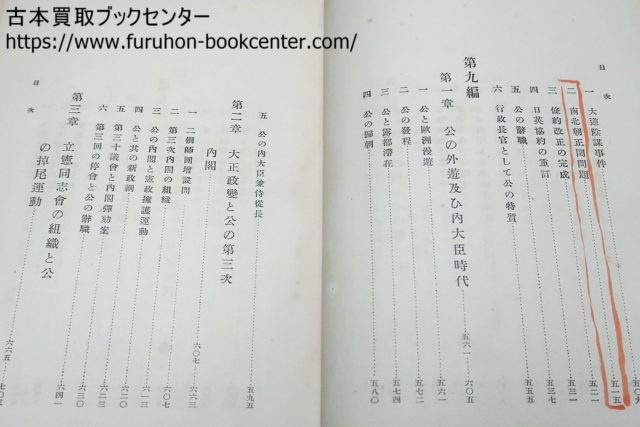 古本買取ブックセンター
https://www.furuhon-bookcenter.com/
目次
一 大逆陰謀事件 五〇九
二 南北朝正閏問題 五一五
三 條約改正の完成 五二一
四 日英協約の重訂 五三一
五 公の辭職 五五五
六 行政長官として公の特質
第九編
第一章 公の外遊及ひ內大臣時代 五六一 六〇五
一 公と歐洲漫遊 五六一
二 公の發程 五七二
三 公と露都滯在 五七四
四 公の歸朝 五八〇
目次
五 公の內大臣兼侍從長 五九五
第二章 大正政變と公の第三次
內閣 六〇七 六六三
一 二個師團增設問
二 第三次內閣の組織 六〇七
三 公の內閣と憲政擁護運動 六一三
四 公と其の新政綱 六二〇
五 第三十議會と內閣彈劾案 六二三
六 第三回の停會と公の辭職 六三〇
第三章 立憲同志會の組織と公 六四一
の掉尾運動 六六五 七〇三